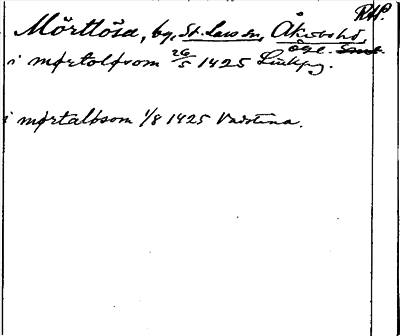 RAP.
Mörtlösa, by, St. Lars sn, Åkerbo hd,
Ögl. Smt.
i mørtoløsom 26/5 1425 Linköping.
i mørtaløsom 1/8 1425 Vadstena.